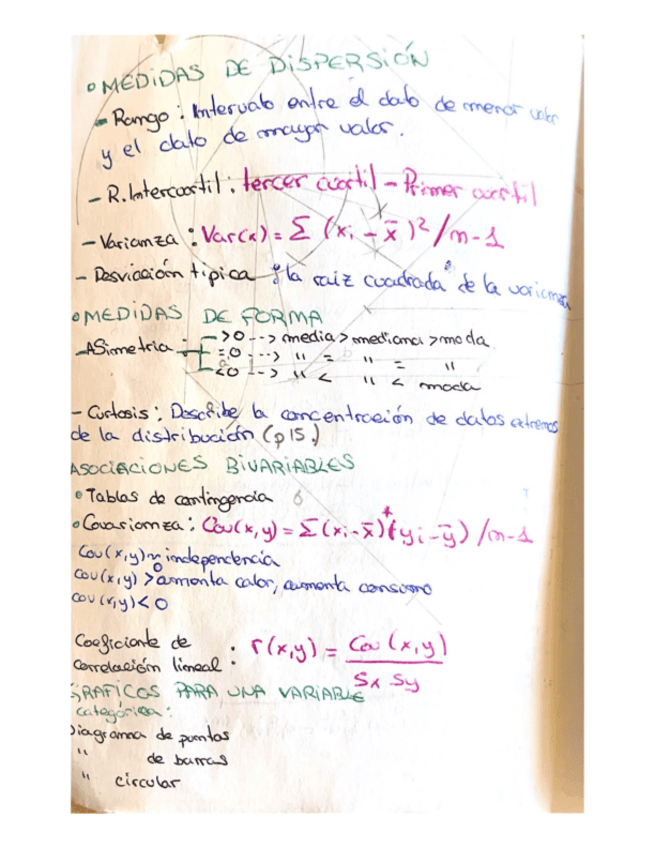 • MEDIDAS DE DISPERSIÓN
- Rango : Intervalo entre el dato de menor valor
y el dato de mayor valor.
- R. Intercuartil : tercer cuartil - Primer cuartil
- Varianza : Var(x) = Σ (xi - x̄)²/n-1
- Desviación típica : "la raiz cuadrada" de la varianza
• MEDIDAS DE FORMA
- ASimetria : >0 --> media > mediana > moda
=0 --> " = " = "
<0 --> " < " < moda
- Curtosis : Describe la concentración de datos extremos
de la distribución (p15.)
ASOCIACIONES BIVARIABLES
• Tablas de contingencia 6
• Covarianza : Cov(x,y) = Σ(xi - x̄)*(yi - ȳ) /n-1
Cov(x,y)~0 independencia
cov(x,y) > aumenta calor, aumenta consumo
cov(x,y) < 0
Coeficiente de
correlación lineal : r(x,y) = Cov(x,y)
Sx Sy
GRAFICOS PARA UNA VARIABLE
categórica :
Diagrama de puntos
" de barras
" circular